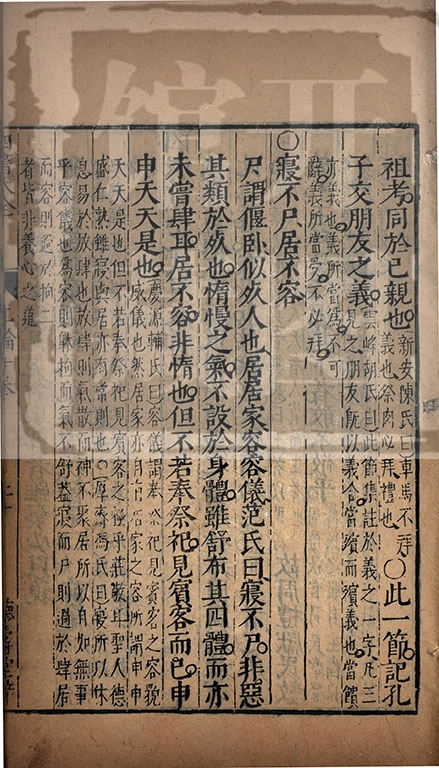 祖考同於己親也新安陳氏曰車馬不拜義也祭肉必拜禮也○此一節記孔
子交朋友之義雲峰胡氏曰此節集註於義之一字凡三見之朋友旣以義合當殯而殯義也當饋
亦義也義所當爲不可辭義所當受不必拜
○寢不尸居不容
尸謂偃臥似死人也居居家容容儀范氏曰寢不尸非惡
其類於死也惰慢之氣不設於身體雖舒布其四體而亦
未嘗肆耳居不容非惰也但不若奉祭祀見賓客而已申
申夭夭是也慶源輔氏曰容儀謂奉祭祀見賓客之容貌威儀也然居家亦自有居家之容所謂申申
夭夭是也但不若奉祭祀見賓客之極乎莊敬耳聖人德盛仁熟雖寢與居亦有常則也○厚齋馮氏曰寢所以休
息易於放肆也放肆則氣散而神不聚居所以自如無事乎容儀也爲容則紼拘而氣不舒蓋寢而尸則過於肆居
而容則過於拘二者皆非養心之道